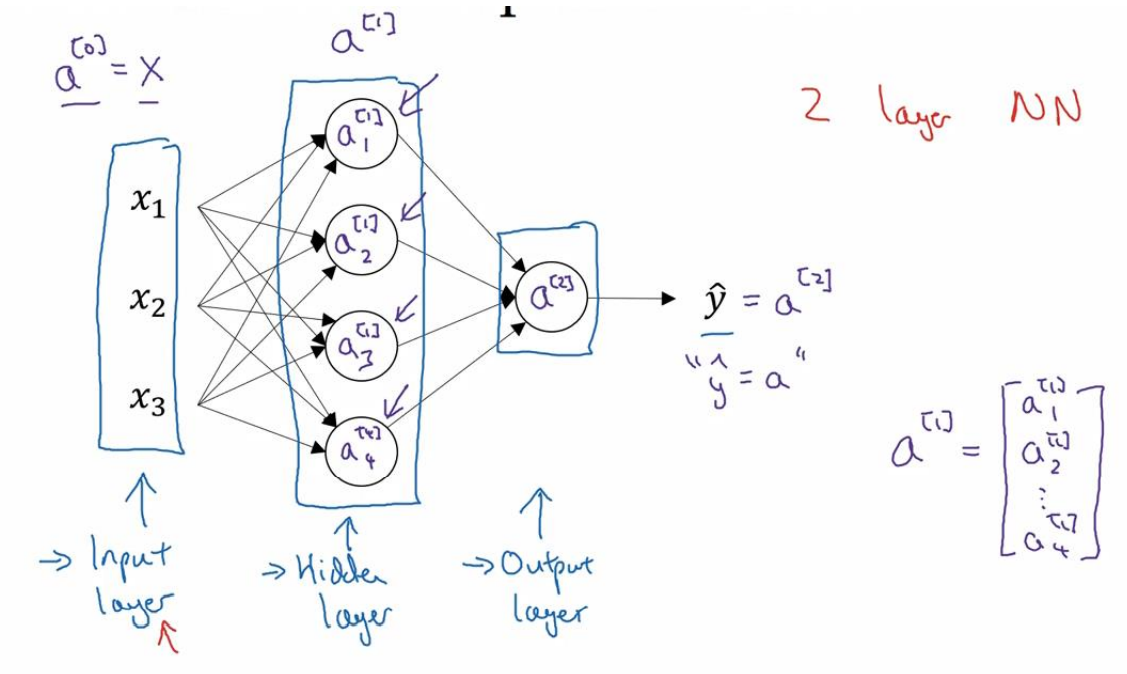 a^[0] = X
a^[1]
2 layer NN
x₁
x₂
x₃
a₁^[1]
a₂^[1]
a₃^[1]
a₄^[4]
a^[2]
ŷ = a^[2]
"ŷ = a"
a^[1] = [ a₁^[1]
a₂^[1]
⋮
a₄^[1] ]
→ Input
layer
→ Hidden
layer
→ Output
layer